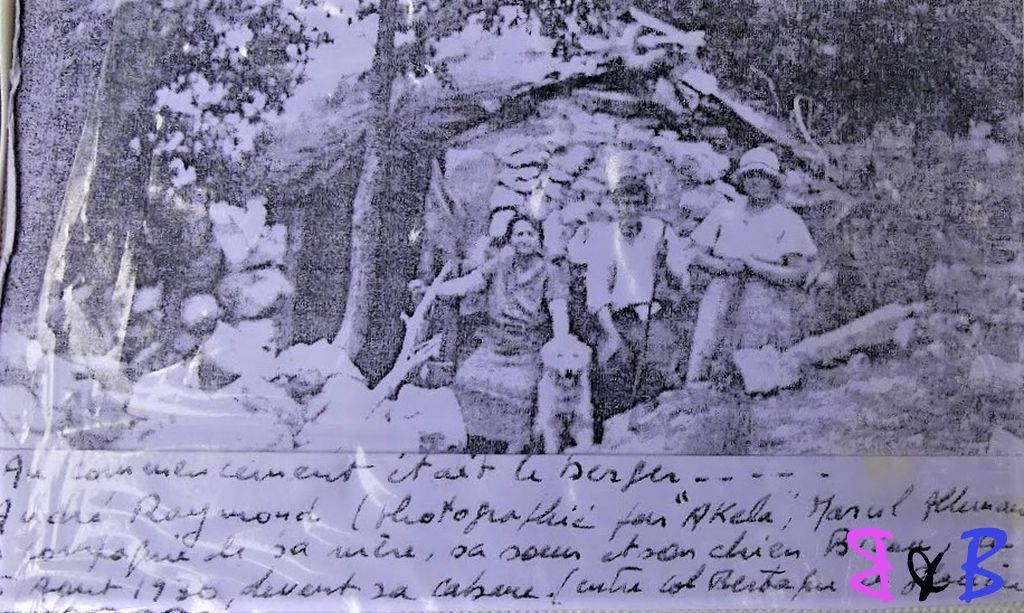 Au commencement était le berger -----
André Raymond (Photographié par "AKela", Marcel
compagnie de sa mère, sa soeur et son chien
Aout 1930, devant sa cabane. (entre col
B & B